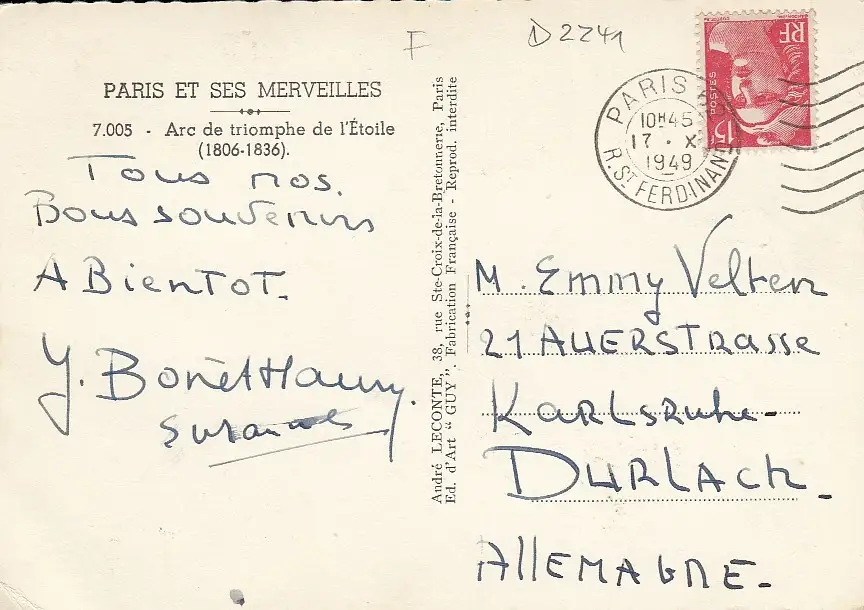 F
D 2241
PARIS ET SES MERVEILLES
7.005 - Arc de triomphe de l'Étoile
(1806-1836).
Tous nos.
Bons souvenirs
A BIENTOT.
Y. Bonet
André LECONTE, 38, rue Ste-Croix-de-la-Bretonnerie, Paris
Ed. d'Art " GUY ". Fabrication Française - Reprod. interdite
RF
POSTES
15F
PARIS
10H45
17 · X
1949
R. ST FERDINAND
M. Emmy Velten
21 AUERSTRASSE
KARLSRUHE-
DURLACH.
ALLEMAGNE.